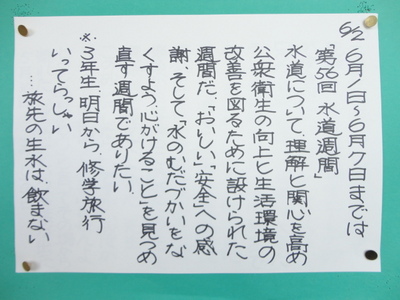 6/2
6月1日〜6月7日までは
「第56回 水道週間」
水道について、理解と関心を高め
公衆衛生の向上と生活環境の
改善を図るために設けられた
週間だ。「おいしい」「安全」への感
謝、そして「水のむだづかいをな
くすよう、心がけること」を見つめ
直す週間でありたい。
※3年生、明日から、修学旅行
いってらっしゃい
…旅先の生水は、飲まない